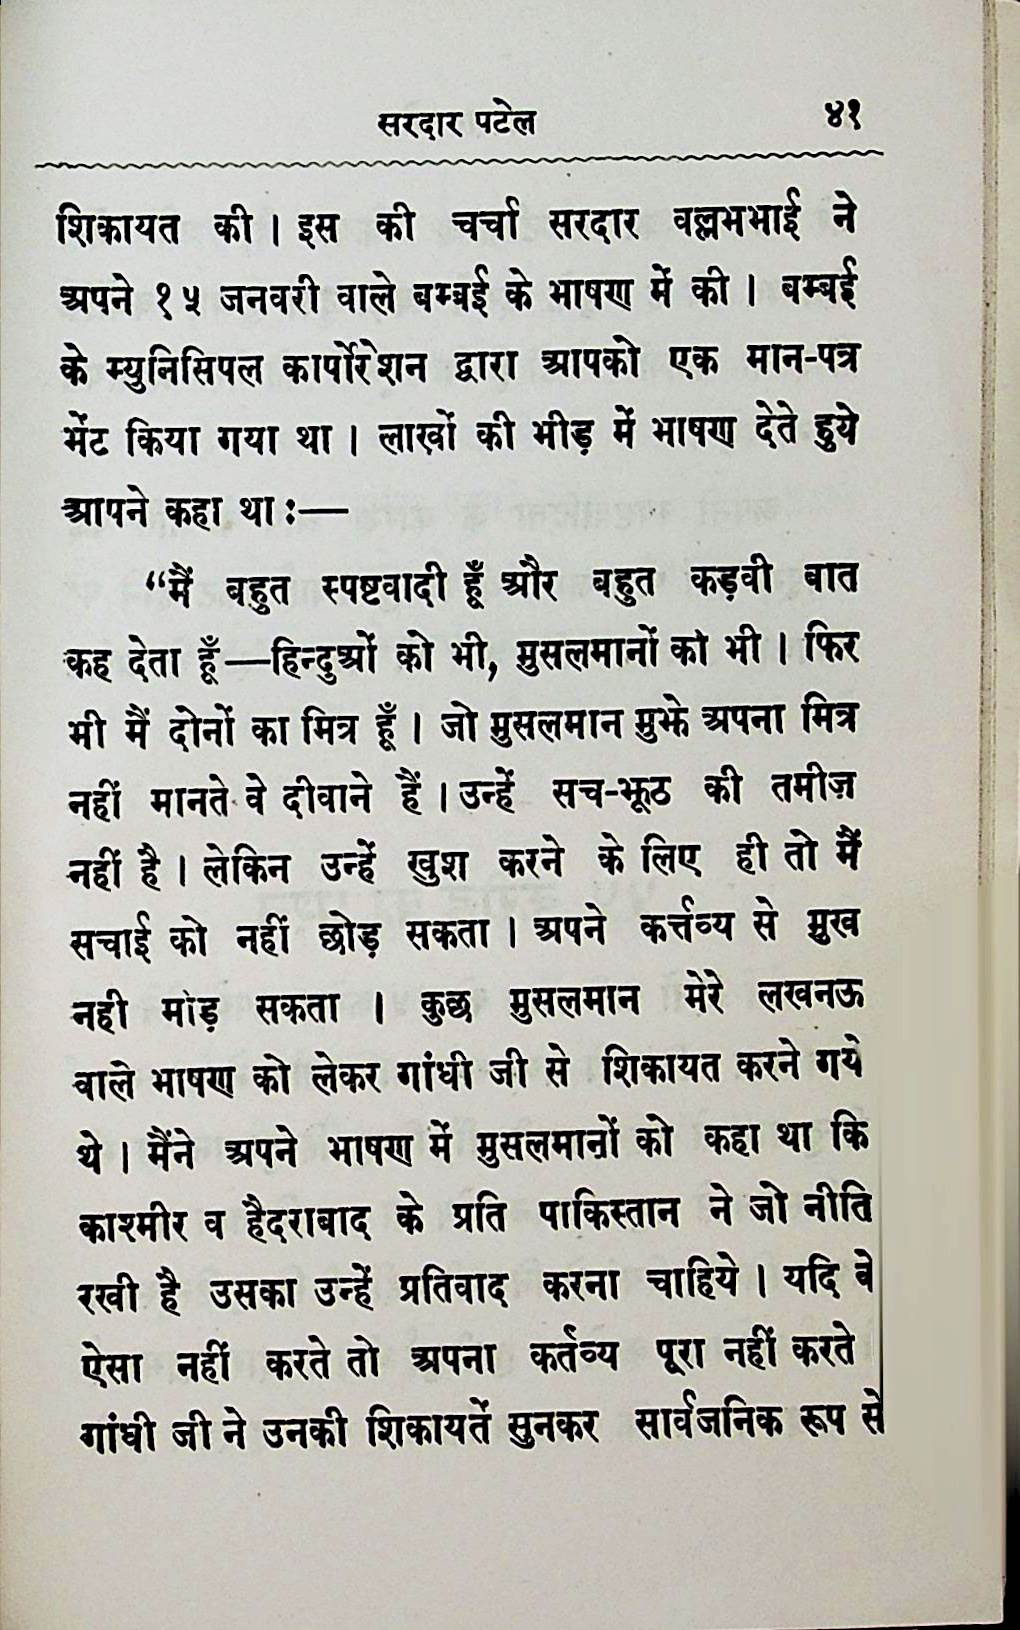 सरदार पटेल ४१
शिकायत की । इस की चर्चा सरदार वल्लभभाई ने
अपने १५ जनवरी वाले बम्बई के भाषण में की । बम्बई
के म्युनिसिपल कार्पोरेशन द्वारा आपको एक मान-पत्र
भेंट किया गया था । लाखों की भीड़ में भाषण देते हुये
आपने कहा था :—
“मैं बहुत स्पष्टवादी हूँ और बहुत कड़वी बात
कह देता हूँ—हिन्दुओं को भी, मुसलमानों को भी । फिर
भी मैं दोनों का मित्र हूँ । जो मुसलमान मुझे अपना मित्र
नहीं मानते वे दीवाने हैं । उन्हें सच-झूठ की तमीज़
नहीं है । लेकिन उन्हें खुश करने के लिए ही तो मैं
सचाई को नहीं छोड़ सकता । अपने कर्त्तव्य से मुख
नही मोड़ सकता । कुछ मुसलमान मेरे लखनऊ
वाले भाषण को लेकर गांधी जी से शिकायत करने गये
थे । मैंने अपने भाषण में मुसलमानों को कहा था कि
काश्मीर व हैदराबाद के प्रति पाकिस्तान ने जो नीति
रखी है उसका उन्हें प्रतिवाद करना चाहिये । यदि वे
ऐसा नहीं करते तो अपना कर्तव्य पूरा नहीं करते
गांधी जी ने उनकी शिकायतें सुनकर सार्वजनिक रूप से